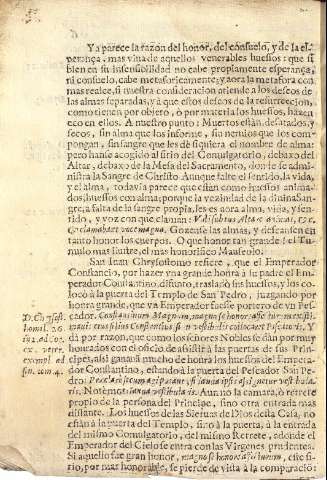 Ya parece la razon del honor, del consuelo, y de la es-
perança, mas viua de aquellos venerables huessos: que si
bien en su insensibilidad no cabe propiamente esperança,
ni consuelo, cabe metaforicamente; y aora la metafora con
mas realce, si nuestra consideracion atiende a los deseos de
las almas separadas, y à que estos deseos de la resurreccion,
como tienen por obieto, ò por materia los huessos, hazen
eco en ellos. A nuestro punto: Muertos están desatados, y
secos, sin alma que los informe, sin neruios que los com-
pongan, sin sangre que les dè siquiera el nombre de alma:
pero hanse acogido al sitio del Comulgatorio, debaxo del
Altar, debaxo de la Mesa del Sacramento, donde se admi-
nistra la Sangre de Christo. Aunque falte el sentido, la vida,
y el alma, todavia parece que están como huessos anima-
dos, huessos con alma; porque la vezindad de la diuina San-
gre, a falta de la sangre propia, les es aora alma, vida, y sen-
tido, y voz con que claman: Vidi subtus Altare animas, &c.
& clamabant voce magna. Gozense las almas, y descansen en
tanto honor los cuerpos. O que honor tan grande! el Tu-
mulo mas ilustre, el mas honorifico Mausoleo.
San Iuan Chrysostomo refiere, que el Emperador
Constancio, por hazer vna grande honra à su padre el Em-
perador Constantino, difunto, trasladó sus huessos, y los co-
locó à la puerta del Templo de San Pedro, juzgando por
honra grande, que vn Emperador fuesse portero de vn Pes-
cador. Constantinum Magnum, magno honore
Y
dà por razon, que como los señores Nobles se dàn por muy
honrados con el oficio de assistir à las puertas de sus Prin-
cipes, assi ganaua mucho de honra los huessos del Empera-
dor Constantino, estando à la puerta del Pescador San Pe-
dro:
ris. Notèmos Aun no la camara, ò retrete
propio de la persona del Principe, sino otra entrada mas
distante. Los huessos de las Sieruas de Dios desta Casa, no
están à la puerta del Templo, sino à la puerta, à la entrada
del mismo Comulgatorio, del mismo Retrete, adonde el
Emperador del Cielo se entra con las Virgenes prudentes.
Si aquello fue gran honor, este si-
tio, por mas honorable, se pierde de vista à la comparacion:
D. Chrysost.
homil. 26
in 2. ad Cor.